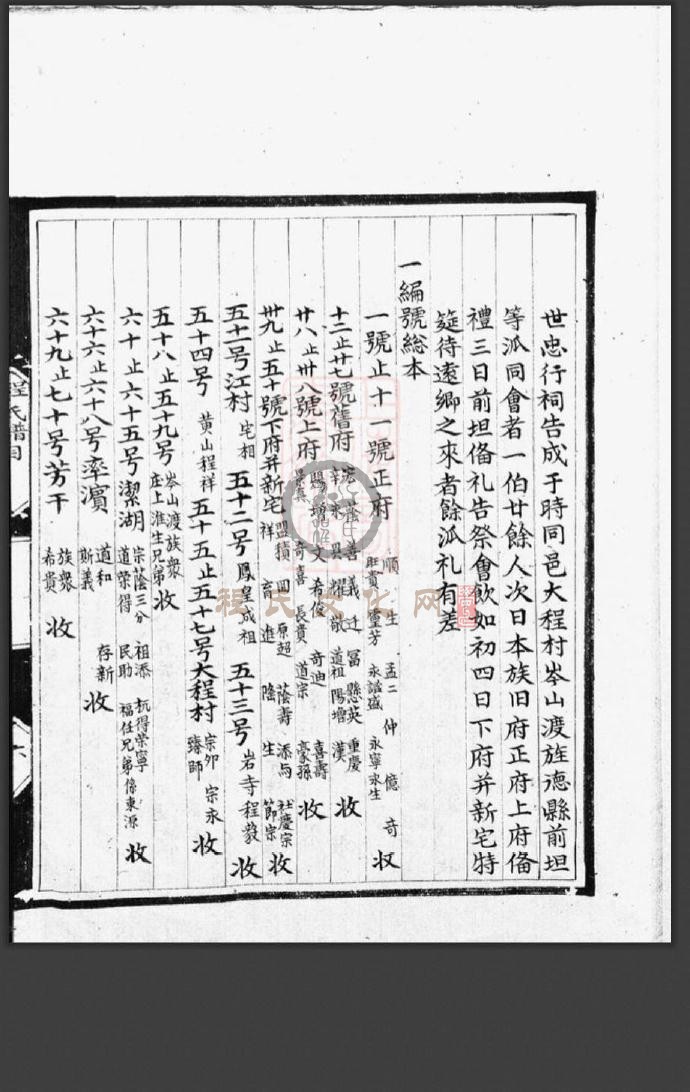 世忠行祠告成于時同邑大程村岑山渡旌德縣前坦
等派同會者一伯廿餘人次日本族旧府正府上府俻
禮三日前坦俻礼告祭會飲如初四日下府并新宅特
筵待遠鄉之來者餘派礼有差
一編號總本
一號止十一號正府 順 生 孟二 仲 憶 奇 旺賓 靈芳 永謐盛 永寧永生 収
十二止廿七號舊府 善 義 迁 冨 懸英 重慶 耀 敬 道祖 陽增 漢 收
廿八止卅八號上府 賜 增 文 希俊 奇迪 喜壽 奇 喜 長貴 道宗 豪孫 收
卅九止五十號下府并新宅 盟積 圓 原超 蔭壽 添与 社慶宗 祥 育 進 隆 生 節宗 收
五十一号江村 宅相 五十二号 鳳皇成祖 五十三号 岩寺程毅 收
五十四号 黄山程祥 五十五止五十七号大程村 宗夘 宗永 臻師 收
五十八止五十九号 岑山渡族衆 庄上淮生兄弟 收
六十止六十五号潔湖 宗蔭三分 祖添 杭得荣寧 道荣得 民助 福任兄弟係東源 收
六十六止六十八号率濱 道和 存新 斯義 收
六十九止七十号芳干 族衆 希貴 收
程氏譜
六
程氏文化网